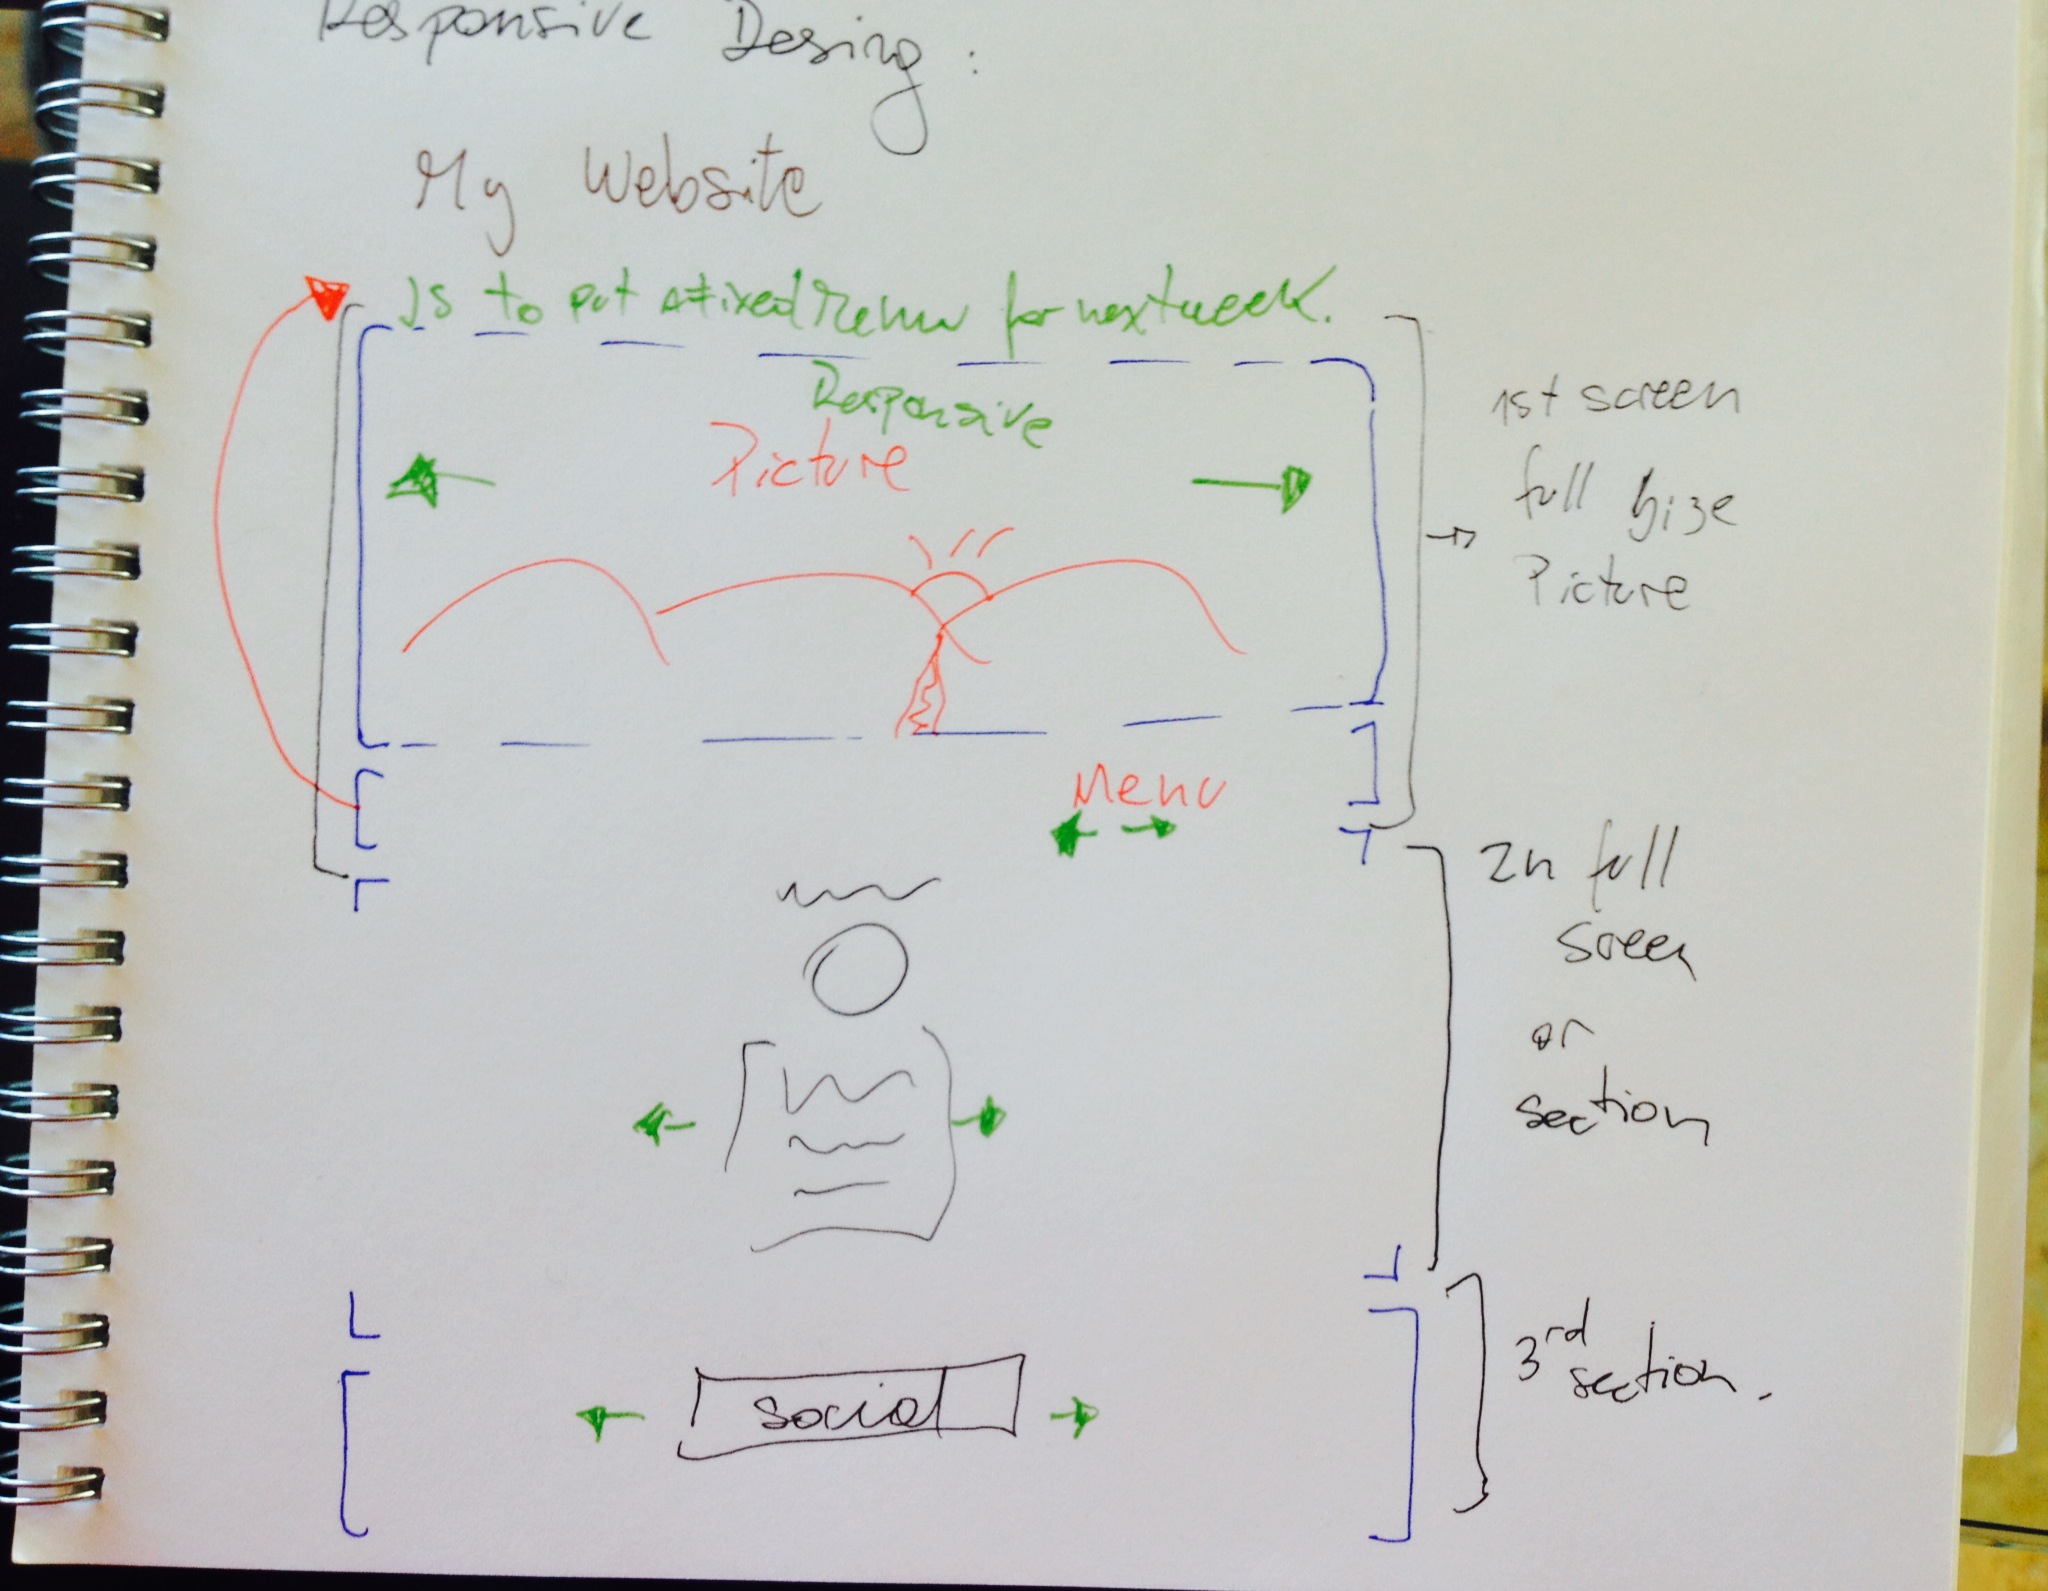 Responsive Desing:
My Website
JS to put a fixed Menu for next week.
Responsive
Picture
1st screen
full size
Picture
Menu
2n full
sreen
or
section
social
3rd
section.